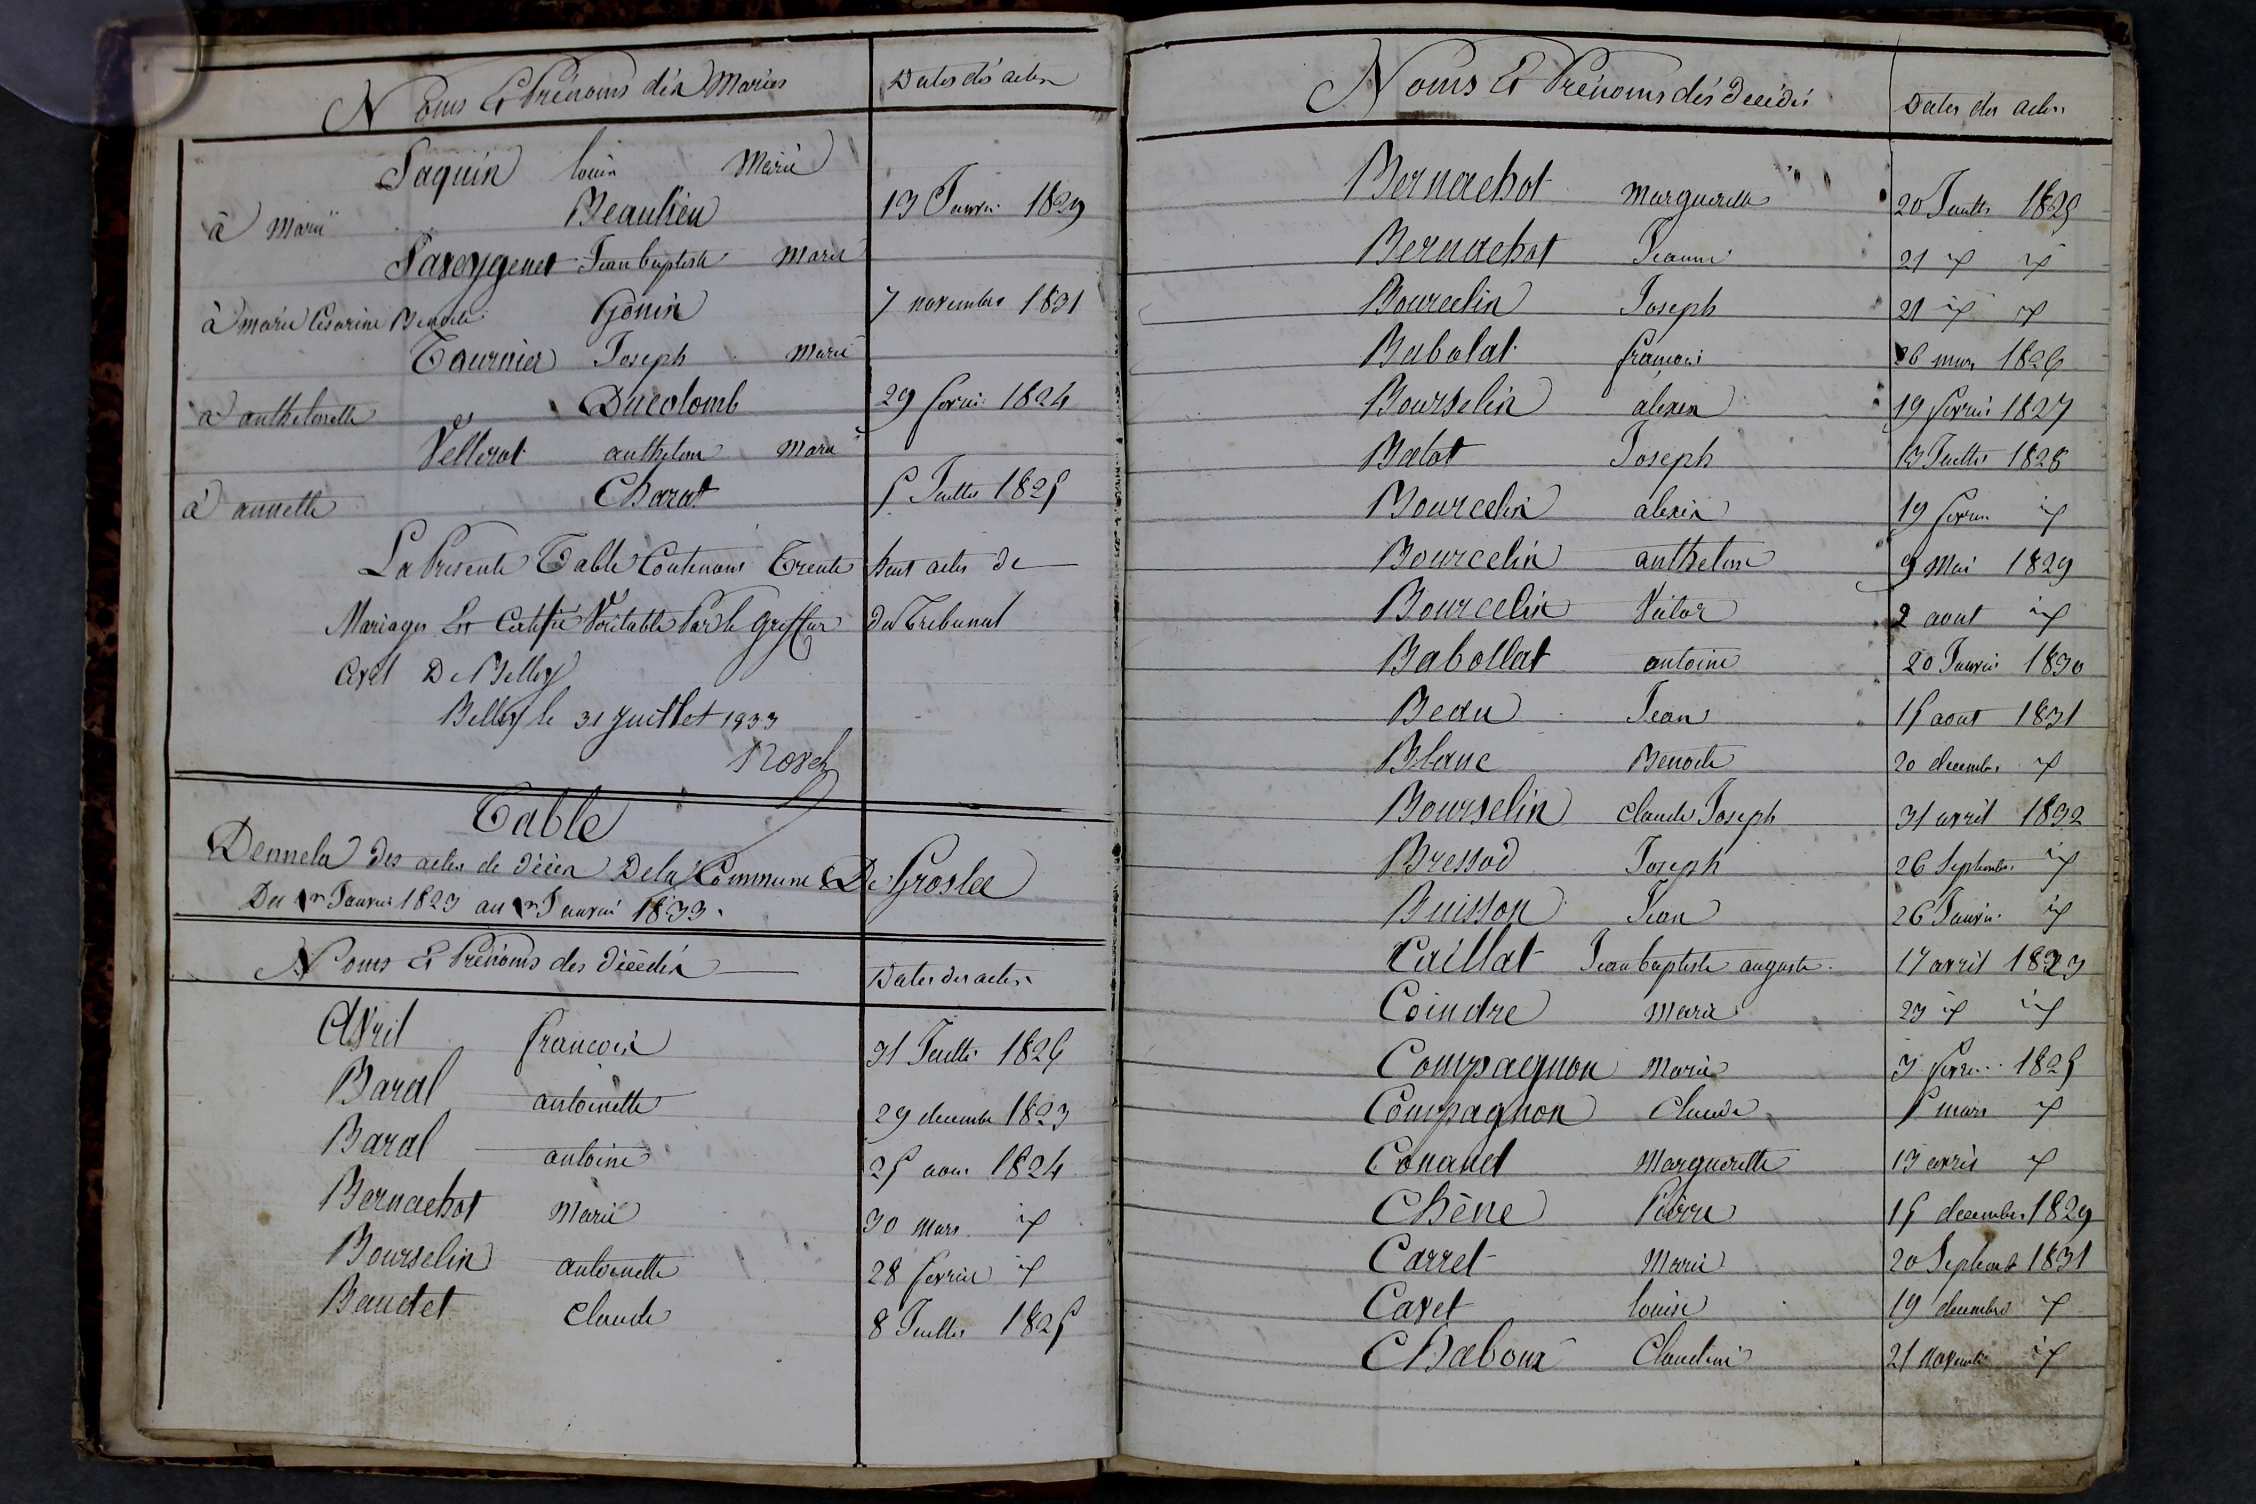 Noms Et Prénoms dés Mariés Dates dés actes
Paquin louis Marié
à Marie Beaulieu 13 Janvier 1829
Paroygenet Jean baptiste Marié
à marie Cesarine Benoite Gonin 7 novembre 1831
Tournier Joseph Marié
à anthelmette Ducolomb 29 fevrier 1824
Vellerat anthelme Marié
à annette Charat 5 Juillet 1825
La Presente Table Contenant Trente huit actes de
Mariages Est Certifié Véritable Par le Greffier du Tribunal
Civil De Belley
Belley le 31 Juillet 1833
Table
Dennela des actes de décès De la Commune De Groslée
Du 1er Janvier 1823 au 1er Janvier 1833.
Noms Et Prénoms des décédés Dates des actes
Avril françois 31 Juillet 1826
Baral antoinette 29 decembre 1823
Baral antoine 25 aout 1824
Bernachot Marie 30 Mars id
Bourselin antoinette 28 fevrier id
Baudet Claude 8 Juillet 1825
Noms Et Prénoms dés Décédés Dates des actes
Bernachot Marguerite 20 Juillet 1825
Bernachot Jeanne 21 id id
Bourcelin Joseph 21 id id
Babolat françois 26 mars 1826
Bourselin alexis 19 fevrier 1827
Balot Joseph 13 Juillet 1828
Bourcelin alexis 19 fevrier id
Bourcelin anthelme 9 Mai 1829
Bourcelin Victor 2 aout id
Babollat antoine 20 Janvier 1830
Bedu Jean 15 aout 1831
Blanc Benoite 20 decembre id
Bourselin Claude Joseph 31 avril 1832
Bressod Joseph 26 Septembre id
Buisson Jean 26 Janvier id
Caillat Jean baptiste auguste 17 avril 1823
Coindre Marie 23 id id
Compagnon Marie 3 fevrier 1825
Compagnon Claude 5 mars id
Conand Marguerite 13 avril id
Chêne Pierre 15 decembre 1829
Carret Marie 20 Septembre 1831
Cavet louise 19 decembre id
Chaboux Claudine 21 Novembre id